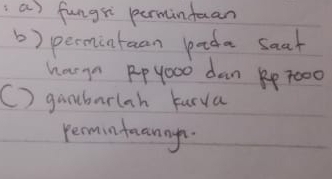 : a) fungsi permintaan
b) permintaan pada saat
harga Rp 4000 dan Rp 7000
C) gambarlah kurva
permintaannya.